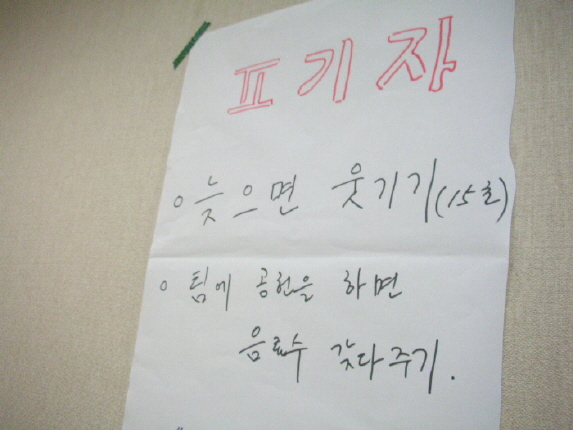 프기자
○ 늦으면 웃기기 (15초)
○ 팀에 공헌을 하면
음료수 갖다주기.